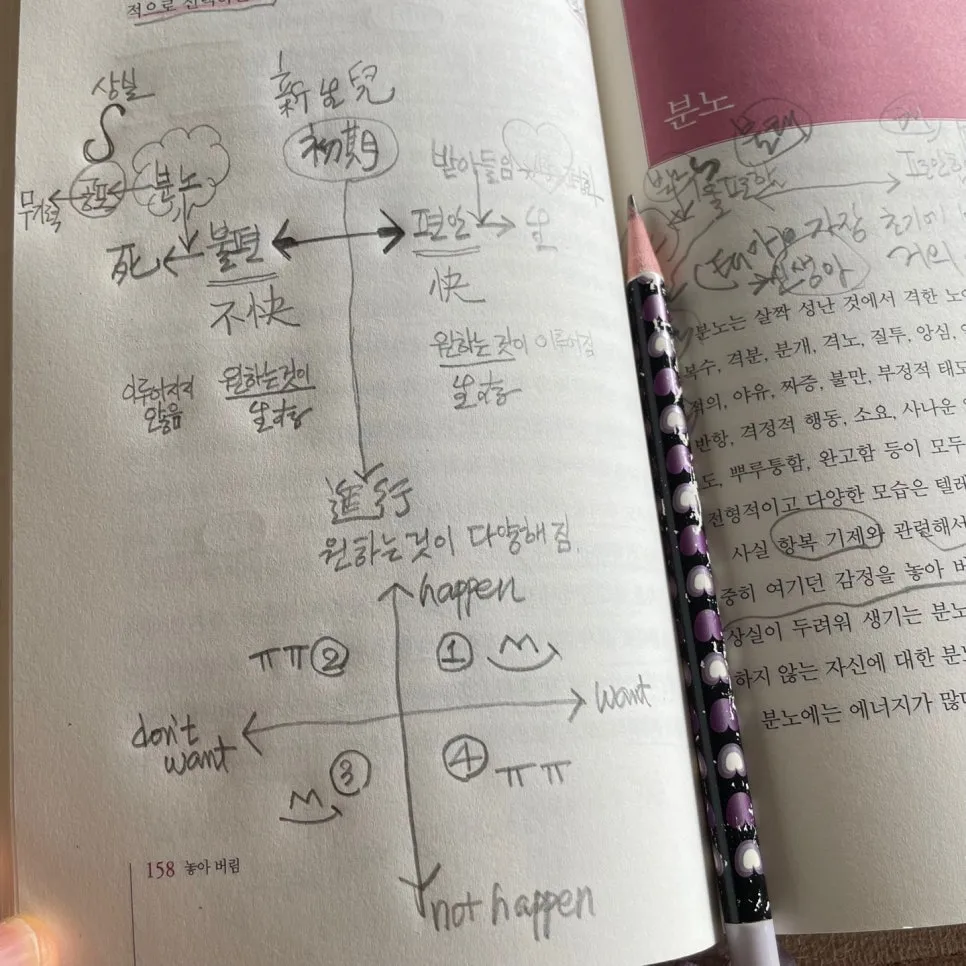 상실
新生兒
初期
분노
공포
무기력
받아들임
死
불편
편안
不快
快
원하는것이 이루어짐
원하는것이
이루어지지
않음
進行
원하는것이 다양해짐.
happen
ㅠㅠ ②
① M
want
don't
want
③
M
④ ㅠㅠ
not happen
158 놓아 버림
분노
불편함
태아
신생아
분노는 살짝 성난 것에서 격한 노여
복수, 격분, 분개, 격노, 질투, 앙심,
적의, 야유, 짜증, 불만, 부정적 태도
반항, 격정적 행동, 소요, 사나운
도, 뿌루퉁함, 완고함 등이 모두
전형적이고 다양한 모습은 텔레
사실 항복 기제와 관련해서
중히 여기던 감정을 놓아 버
상실이 두려워 생기는 분노
하지 않는 자신에 대한 분노
분노에는 에너지가 많다